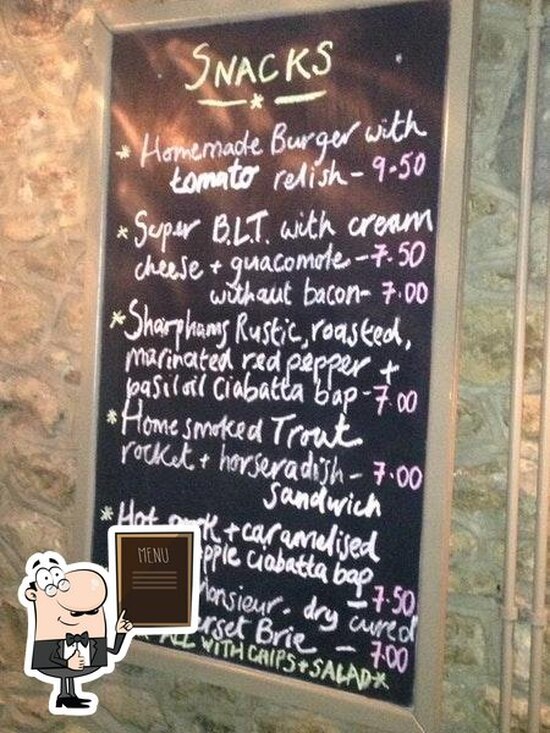 SNACKS
* Homemade Burger with
tomato relish - 9.50
* Super B.L.T. with cream
cheese + guacomole - 7.50
without bacon - 7.00
* Sharphams Rustic, roasted,
marinated red pepper +
basil oil Ciabatta bap - 7.00
* Home smoked Trout
rocket + horseradish - 7.00
sandwich
* Hot pork + caramelised
ciabatta bap
- 7.50
Monsieur. dry cured
Brie - 7.00
ALL WITH CHIPS + SALAD *
MENU